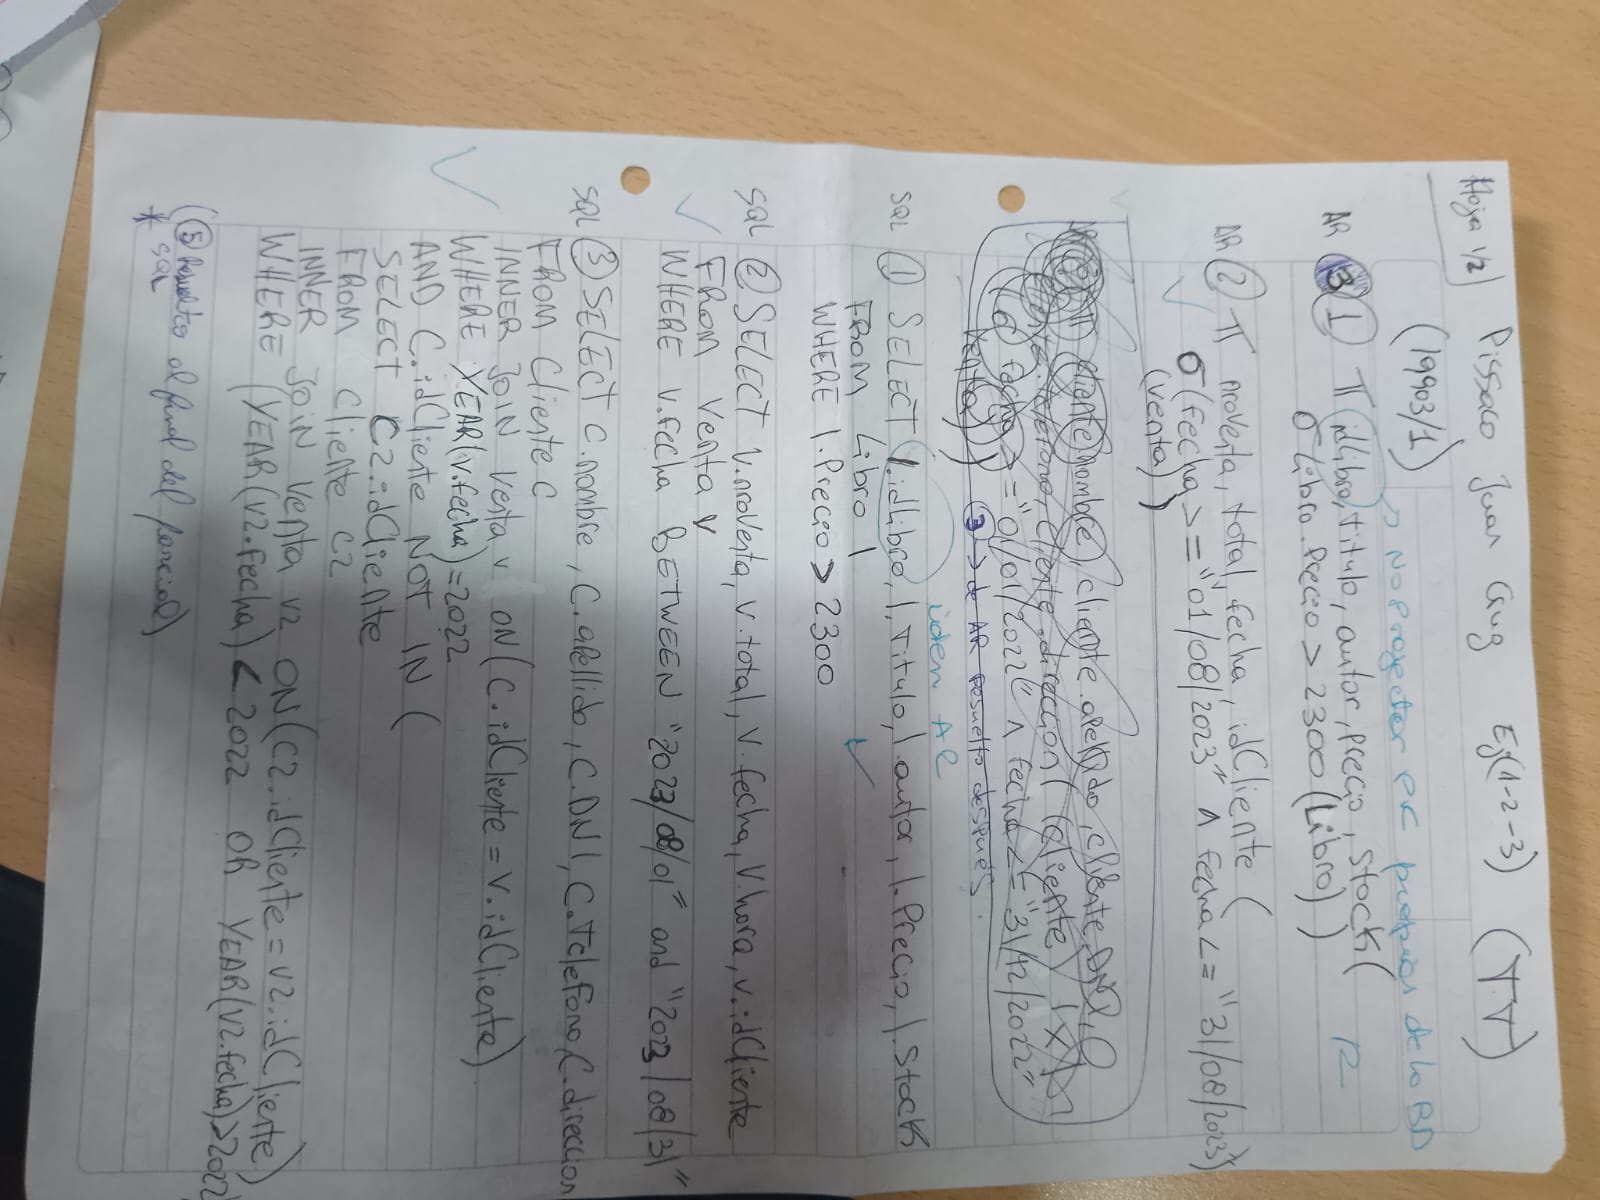 Hoja 1/2 Pissaco Juan Cruz Ej(1-2-3) (TT)
(19903/1)
→ No Projectar PK propias de la BD
AR 1 π idLibro, titulo, autor, precio, stock(
σ Libro.Precio > 2300 (Libro) )
AR 2 π nroVenta, total, fecha, idCliente (
σ(fecha >= "01/08/2023" ∧ fecha <= "31/08/2023")
(venta) )
AR 3 π cliente.nombre, cliente.apellido, cliente.DNI,
cliente.telefono, cliente.direccion( (cliente) |x|
(σ fecha >= "01/01/2022" ∧ fecha <= "31/12/2022"
venta) )
3 → de AR resuelto después.
idem AR
SQL 1 SELECT l.idLibro, l.Titulo, l.autor, l.Precio, l.Stock
FROM Libro l
WHERE l.Precio > 2300
SQL 2 SELECT v.nroVenta, v.total, v.fecha, v.hora, v.idCliente
FROM Venta v
WHERE v.fecha BETWEEN "2023/08/01" and "2023/08/31"
SQL 3 SELECT C.nombre, C.apellido, C.DNI, C.Telefono, C.direccion
FROM Cliente C
INNER JOIN Venta v ON(C.idCliente = V.idCliente)
WHERE YEAR(v.fecha)=2022
AND C.idCliente NOT IN (
SELECT C2.idCliente
FROM Cliente C2
INNER JOIN Venta V2 ON(C2.idCliente = V2.idCliente)
WHERE (YEAR(V2.fecha) < 2022 OR YEAR(V2.fecha)>2022
(5 Resuelto al final del parcial)
* SQL